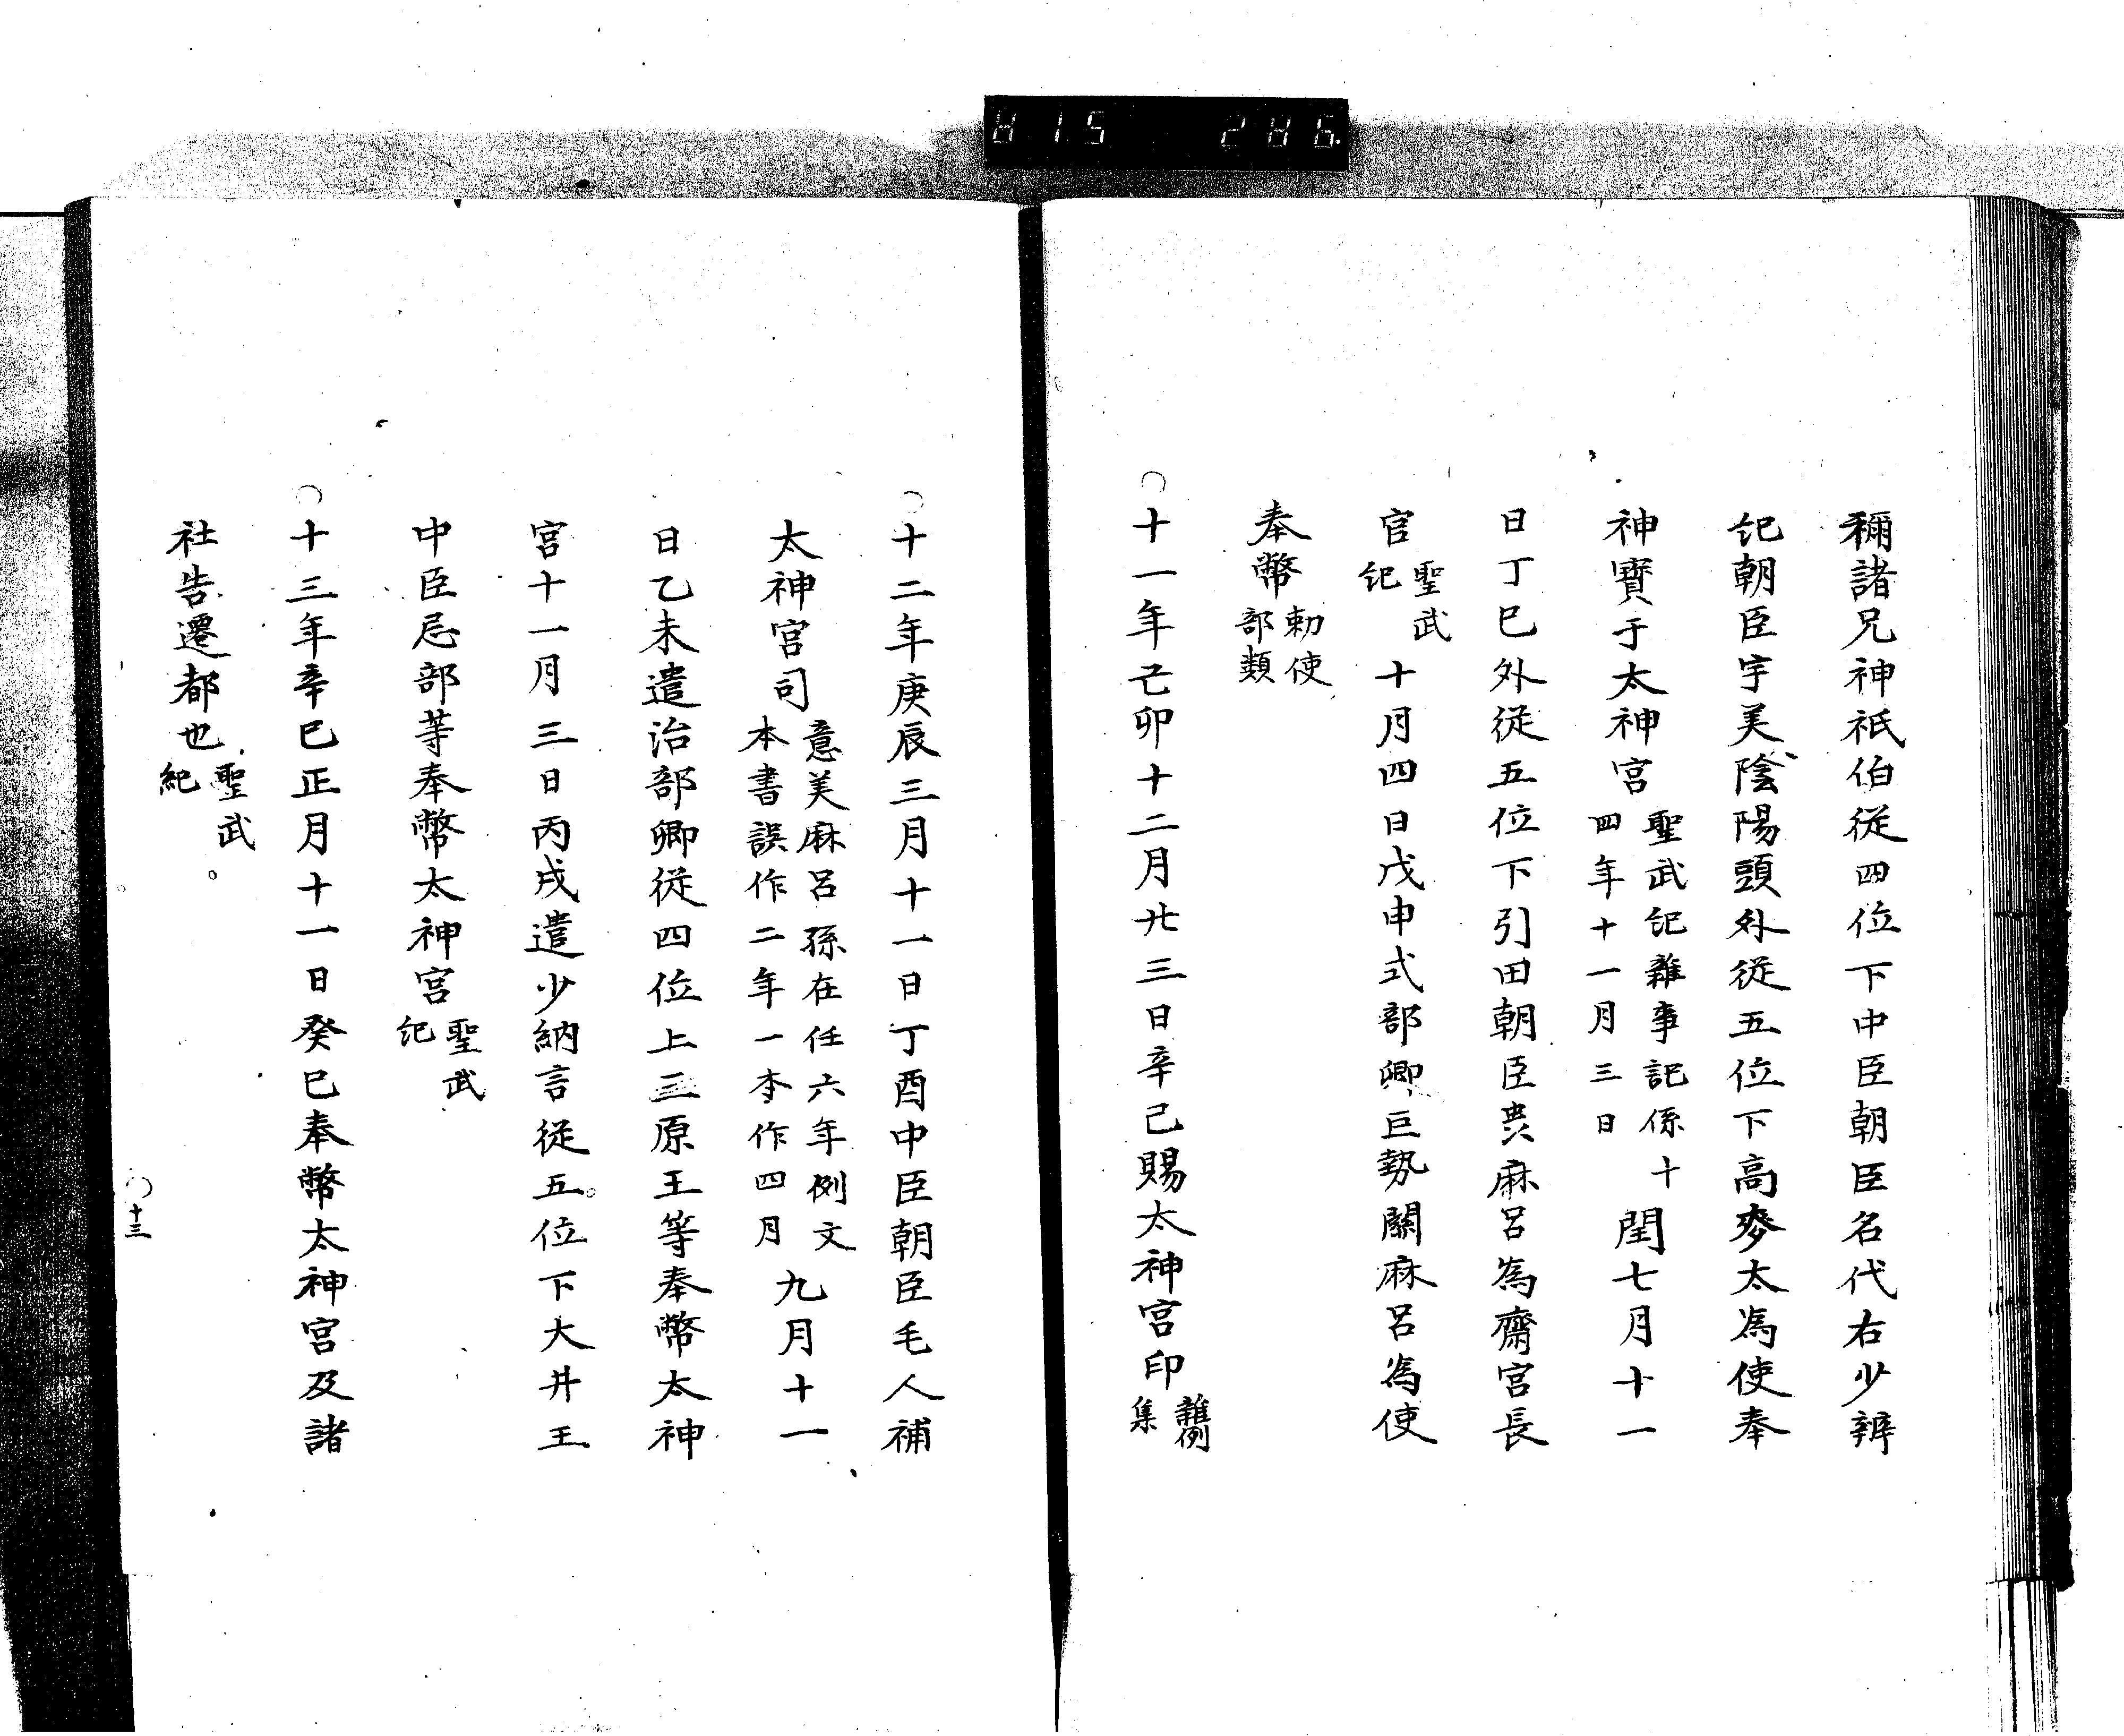 禰諸兄神祇伯従四位下中臣朝臣名代右少辨
紀朝臣宇美陰陽頭外従五位下高麥太為使奉
神寶于太神宮聖武紀雜事記係十四年十一月三日閏七月十一
日丁巳外従五位下引田朝臣虫麻呂為齋宮長
官聖武紀十月四日戊申式部卿巨勢關麻呂為使
奉幣勅使部類
〇十一年己卯十二月廿三日辛己賜太神宮印雜例集
〇十二年庚辰三月十一日丁酉中臣朝臣毛人補
太神宮司意美麻呂孫在任六年例文本書誤作二年一本作四月九月十一
日乙未遣治部卿従四位上三原王等奉幣太神
宮十一月三日丙戌遣少納言従五位下大井王
中臣忌部等奉幣太神宮聖武紀
〇十三年辛巳正月十一日癸巳奉幣太神宮及諸
社告遷都也聖武紀
〇十三